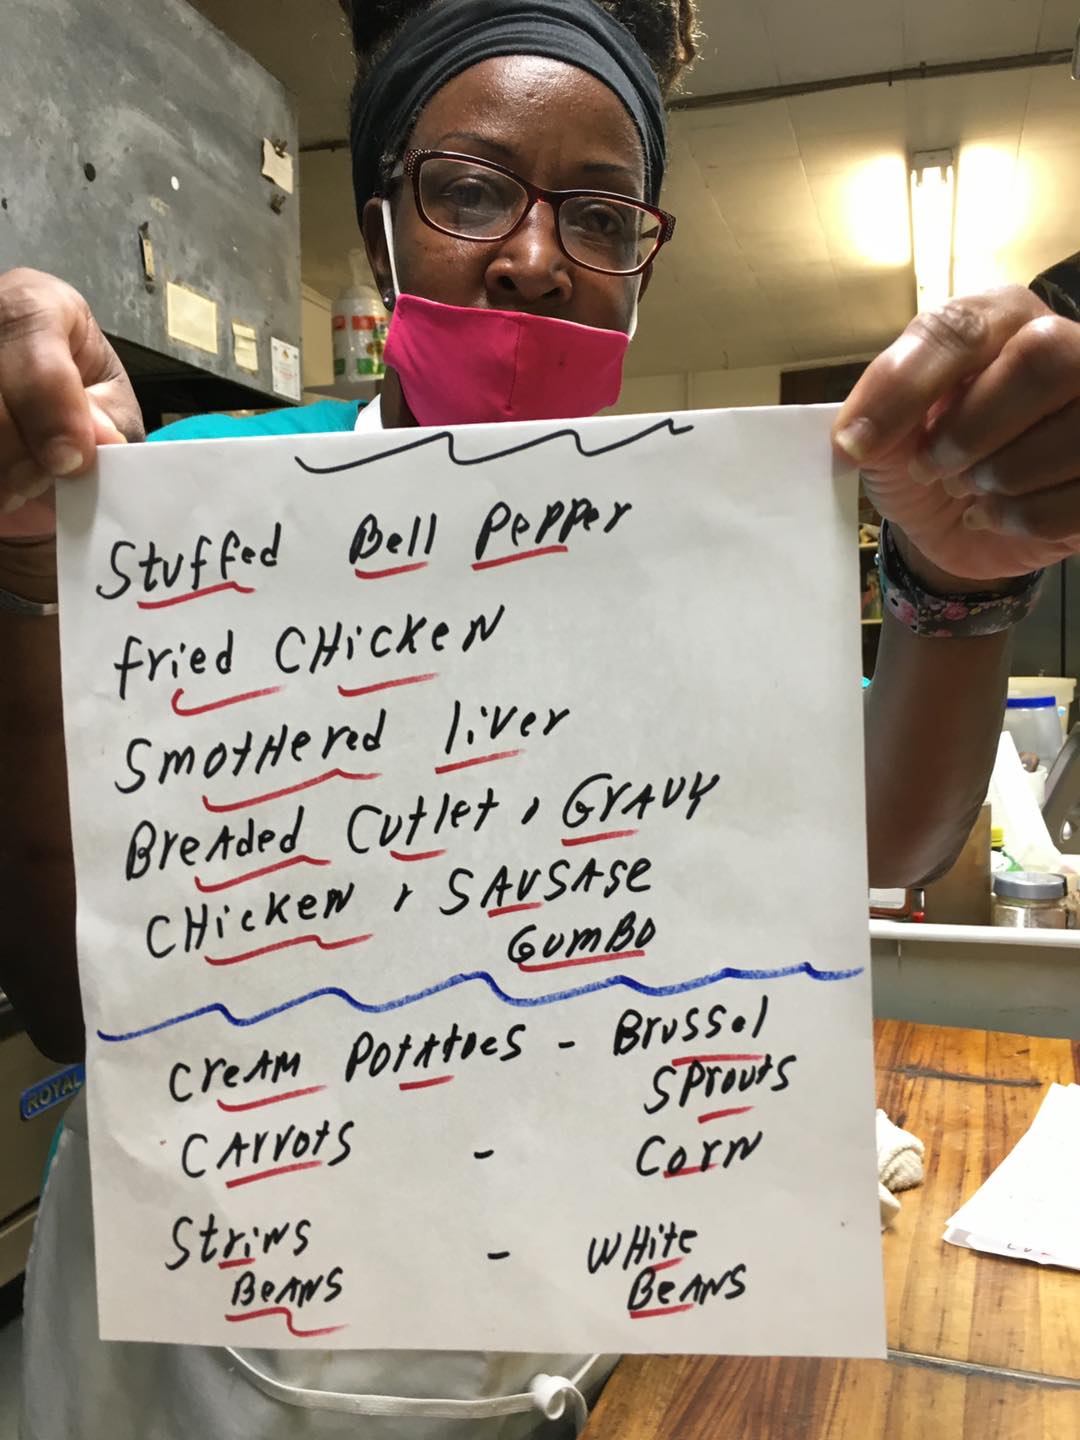 Stuffed Bell Pepper
fried CHicken
Smothered liver
Breaded Cutlet, Gravy
CHicken, Sausase
Gumbo
Cream Potatoes - Brussel
Sprouts
Carrots - Corn
Strins - WHite
Beans Beans
ROYAL